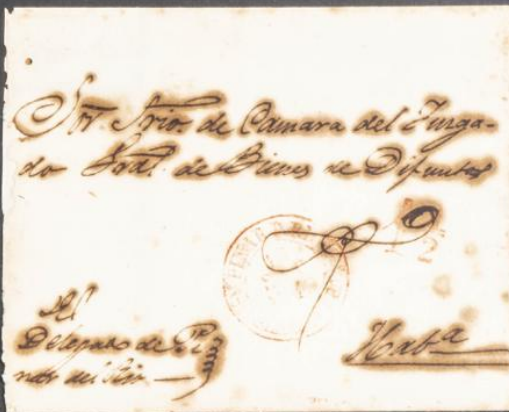 Sōr. Srio. de Camara del Juzga-
do Gral. de Bienes de Difuntos
Del
Delegado de Pi
nar del Rio —
Haba